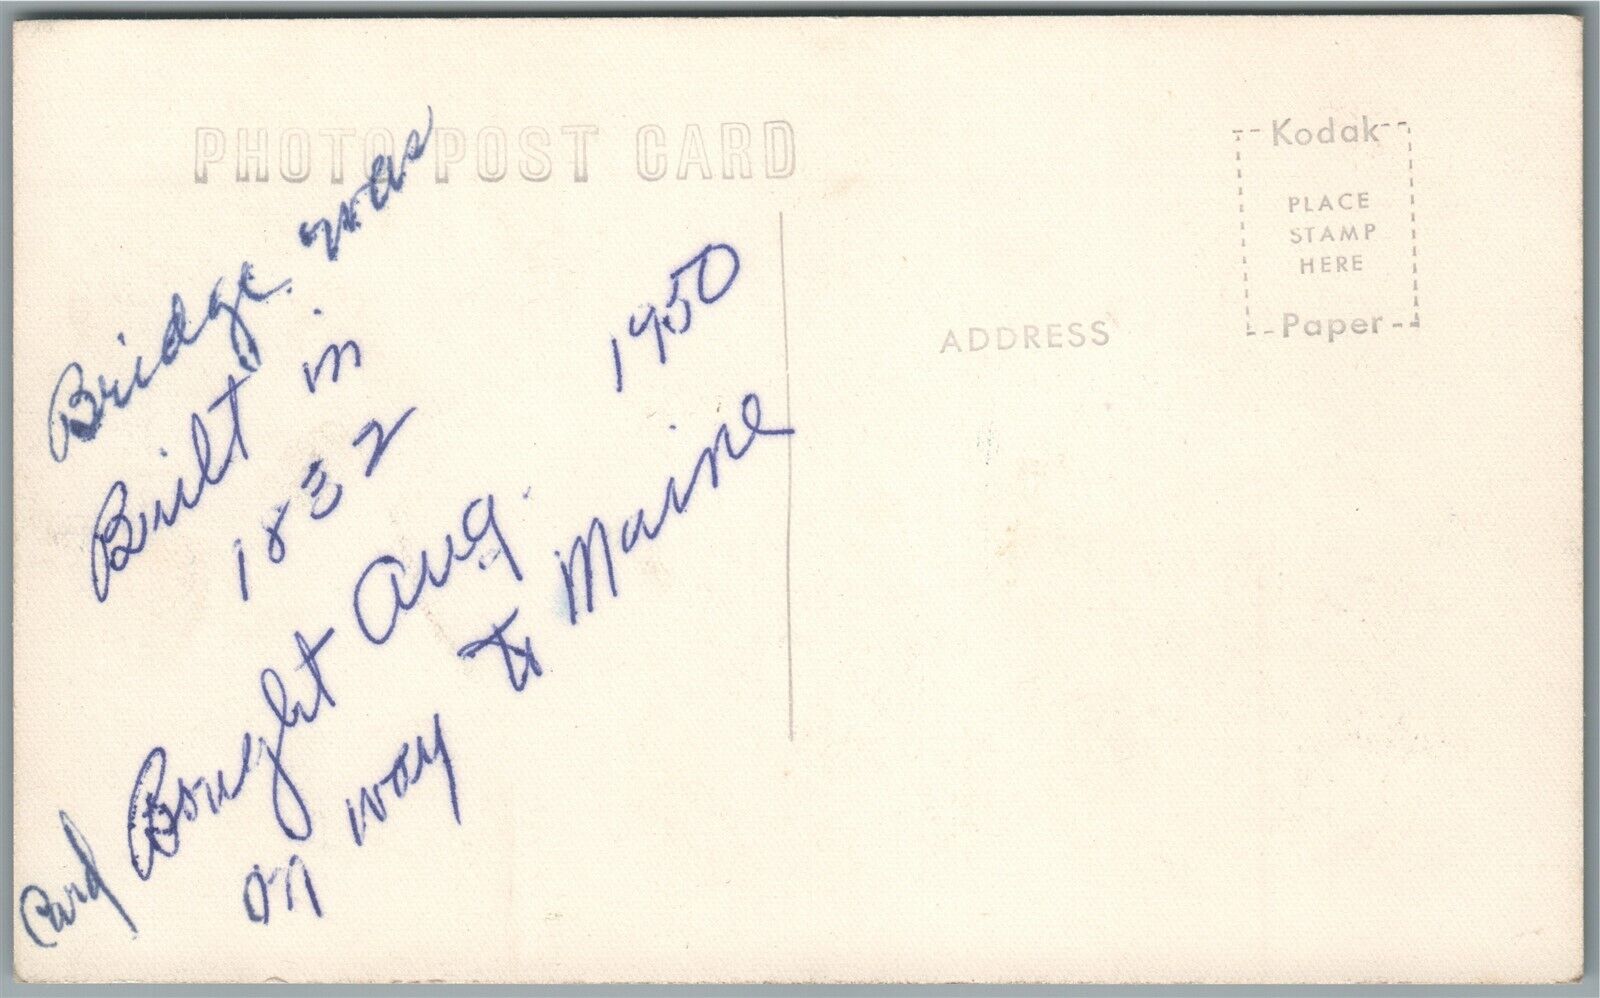 PHOTO POST CARD
Bridge was
Built in
1832
Card Bought Aug. 1950
on way to Maine
ADDRESS
Kodak
PLACE
STAMP
HERE
Paper